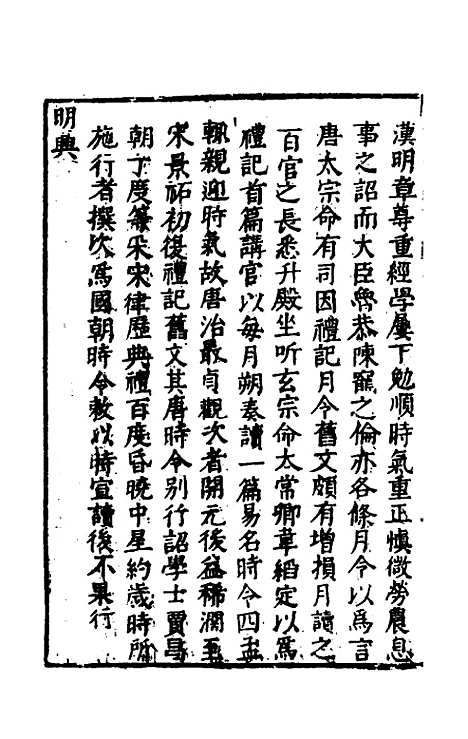 漢明章尊重經學屢下勉順時氣重正愼微勞農息
事之詔而大臣魯恭陳寵之倫亦各條月令以爲言
唐太宗命有司因禮記月令舊文頗有增損月讀之
百官之長悉升殿坐听玄宗命太常卿韋縚定以爲
禮記首篇講官以每月朔奏讀一篇易名時令四孟
輒親迎時氣故唐治最貞觀次者開元後益稀濶至
宋景祐初復禮記舊文其唐時令别行詔學士賈昌
朝丁度等采宋律歷典禮百度昏曉中星約歲時所
施行者撰次爲國朝時令敕以時宣讀後不果行
明興